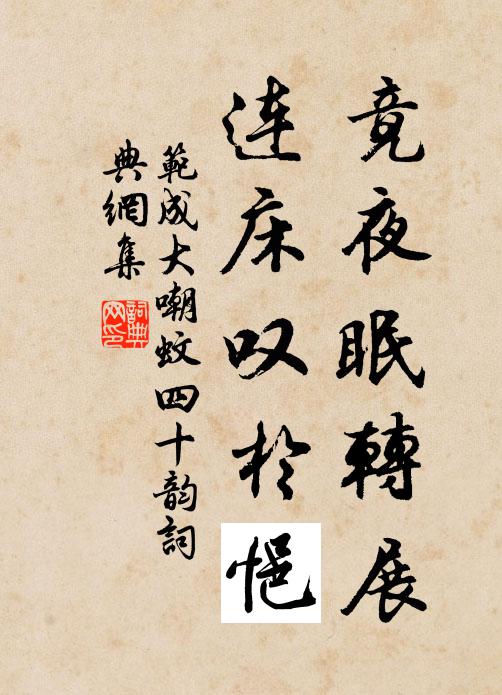 竟夜眠轉展
連床叹於悒
範成大嘲蚊四十韵詞
典網集
詞典网印